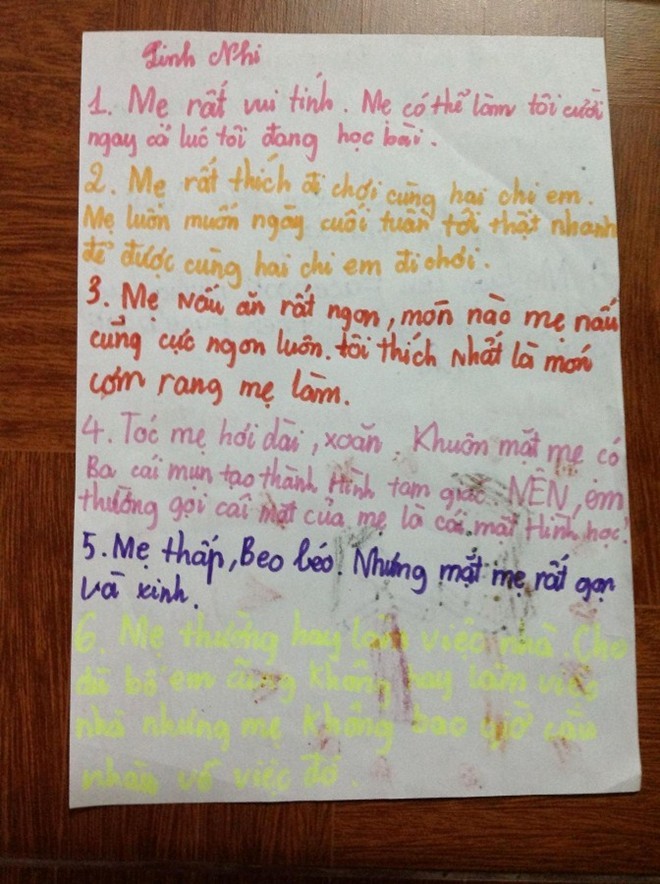 Linh Nhi
1. Mẹ rất vui tính. Mẹ có thể làm tôi cười
ngay cả lúc tôi đang học bài.
2. Mẹ rất thích đi chơi cùng hai chị em.
Mẹ luôn muốn ngày cuối tuần tới thật nhanh
để được cùng hai chi em đi chơi.
3. Mẹ nấu ăn rất ngon, món nào mẹ nấu
cũng cực ngon luôn. tôi thích nhất là món
cơm rang mẹ làm.
4. Toć mẹ hơi dài, xoăn. Khuôn mặt mẹ có
Ba cái mụn tạo thành Hình tam giác NÊN, em
thường gọi cái mặt của mẹ là cái mặt Hình học!
5. Mẹ thấp, Beo béo. Nhưng mặt mẹ rất gọn
và xinh.
6. Mẹ thường hay làm việc nhà. Cho
dù bố em cũng không hay làm việc
nhà nhưng mẹ không bao giờ cằu
nhằu về việc đó.